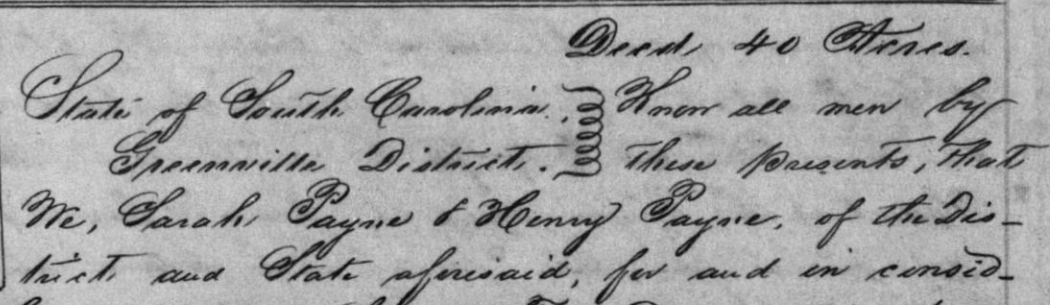 Deed 40 Acres.
State of South Carolina. Know all men by
Greenville District. these presents, that
We, Sarah Payne & Henry Payne, of the Dis-
trict and State aforesaid, for and in consid-